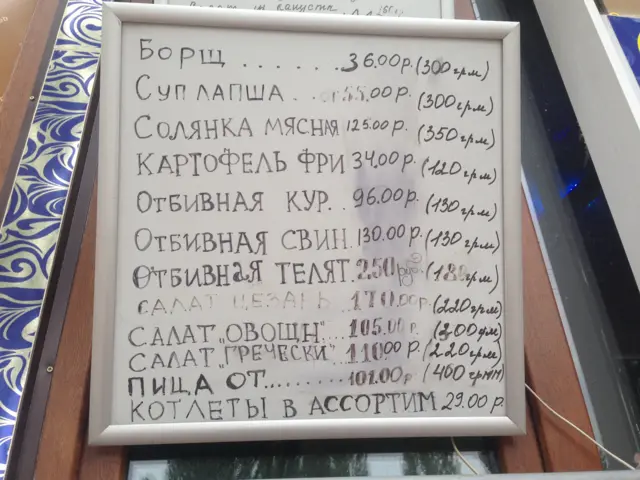 Борщ ....... 36.00р. (300грм)
Суп лапша .. 55.00р. (300грм)
Солянка мясная 125.00р. (350грм)
Картофель фри 34.00р. (120грм)
Отбивная кур. 96.00р. (130грм)
Отбивная свин. 130.00р. (130грм)
Отбивная телят. 250руб (180грм)
Салат Цезарь 170.00р. (220грм)
Салат „Овощн" ... 105.00р. (200грм)
Салат „Гречески" 110.00р. (220грм)
Пица от ......... 101.00р (400грмм)
Котлеты в ассортим 29.00р.